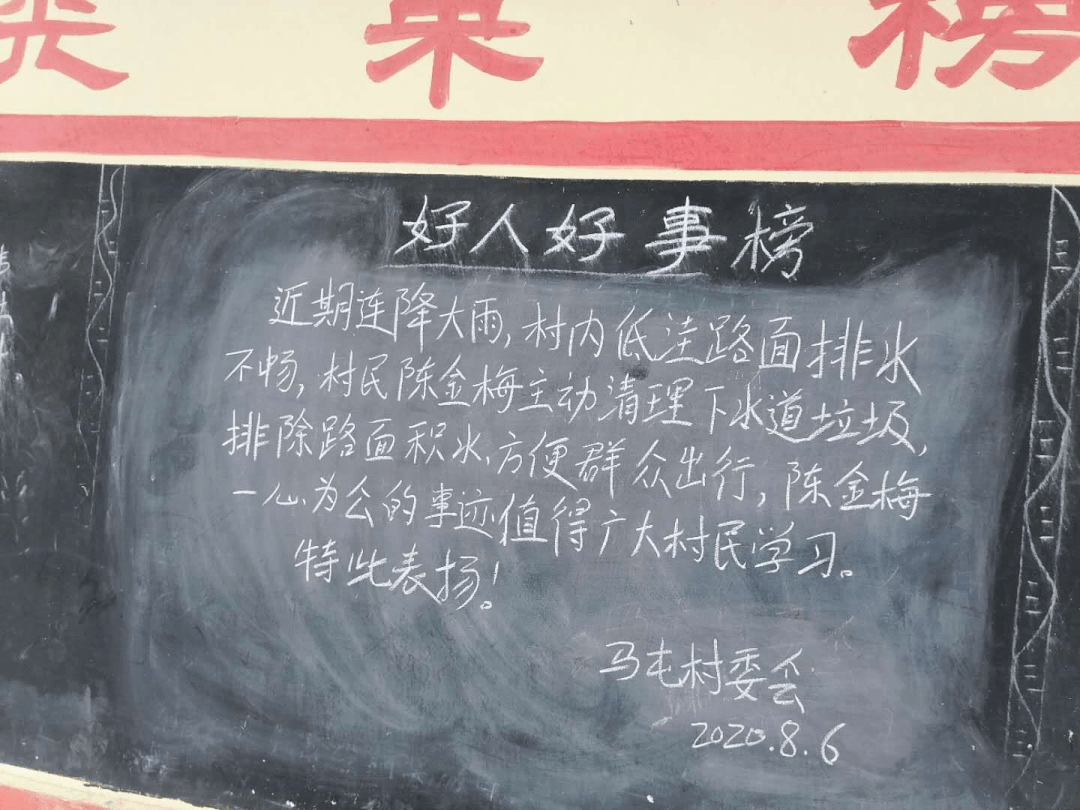 榜
好人好事榜
近期连降大雨,村内低洼路面排水
不畅,村民陈金梅主动清理下水道垃圾,
排除路面积水、方便群众出行,陈金梅
一心为公的事迹值得广大村民学习。
特此表扬!
马屯村委会
2020.8.6